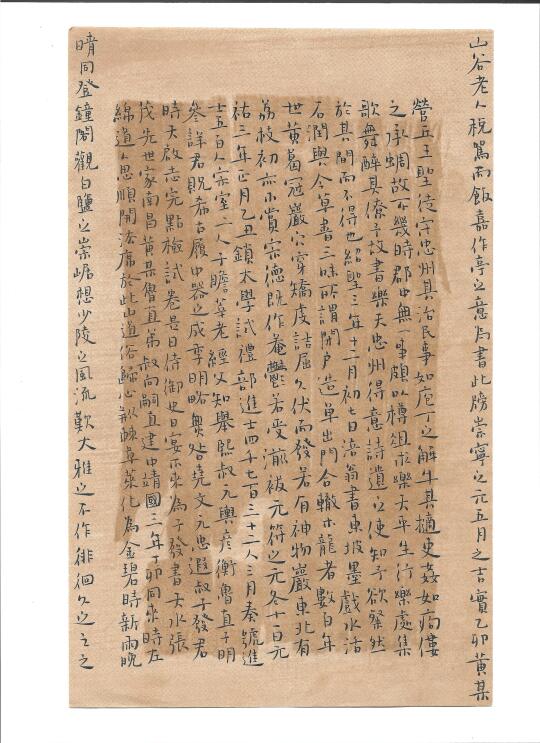 山谷老人稅駕而飯嘉作亭之意為書此牓崇寧之元五月之吉實乙卯黃某
營丘王聖徒守忠州其治民事如庖丁之解牛其擿吏姦如痀僂
之承蜩故不幾時郡中無事頗以樽俎求樂太平生行樂處集
歌舞醉其僚予故書樂天忠州得意詩遺之使知予欲粲然
於其間而不得也紹聖三年十二月初七日涪翁書東坡墨戲水活
石潤與今草書三昧所謂閉戶造車出門合轍木龍者數百年
世黃葛冠巖穴穿矯虔詰屈久伏而發若有神物巖東北有
荔枝初亦小賞宗德既作菴鬱若受湔祓元符之元冬十百元
祐三年正月乙丑鎖太學試禮部進士四千七百三十二人三月奏號進
士五百人宗室二人子瞻莘老經父知舉熙叔元輿彥衡魯直子明
參詳君貺希古履中器之成季明略無咎堯文元忠遐叔子發君
時天啟志完點檢試卷是日侍御史日宴不來為子發書大水張
茂先世家南昌黃某魯直弟叔向嗣直建中靖國二年丁卯同來時左
綿道人思順開法席於此山道俗歸心荊棘草萊化為金碧時新雨晚
晴同登鐘閣觀白鹽之崇崛想少陵之風流歎大雅之不作徘徊久之之之